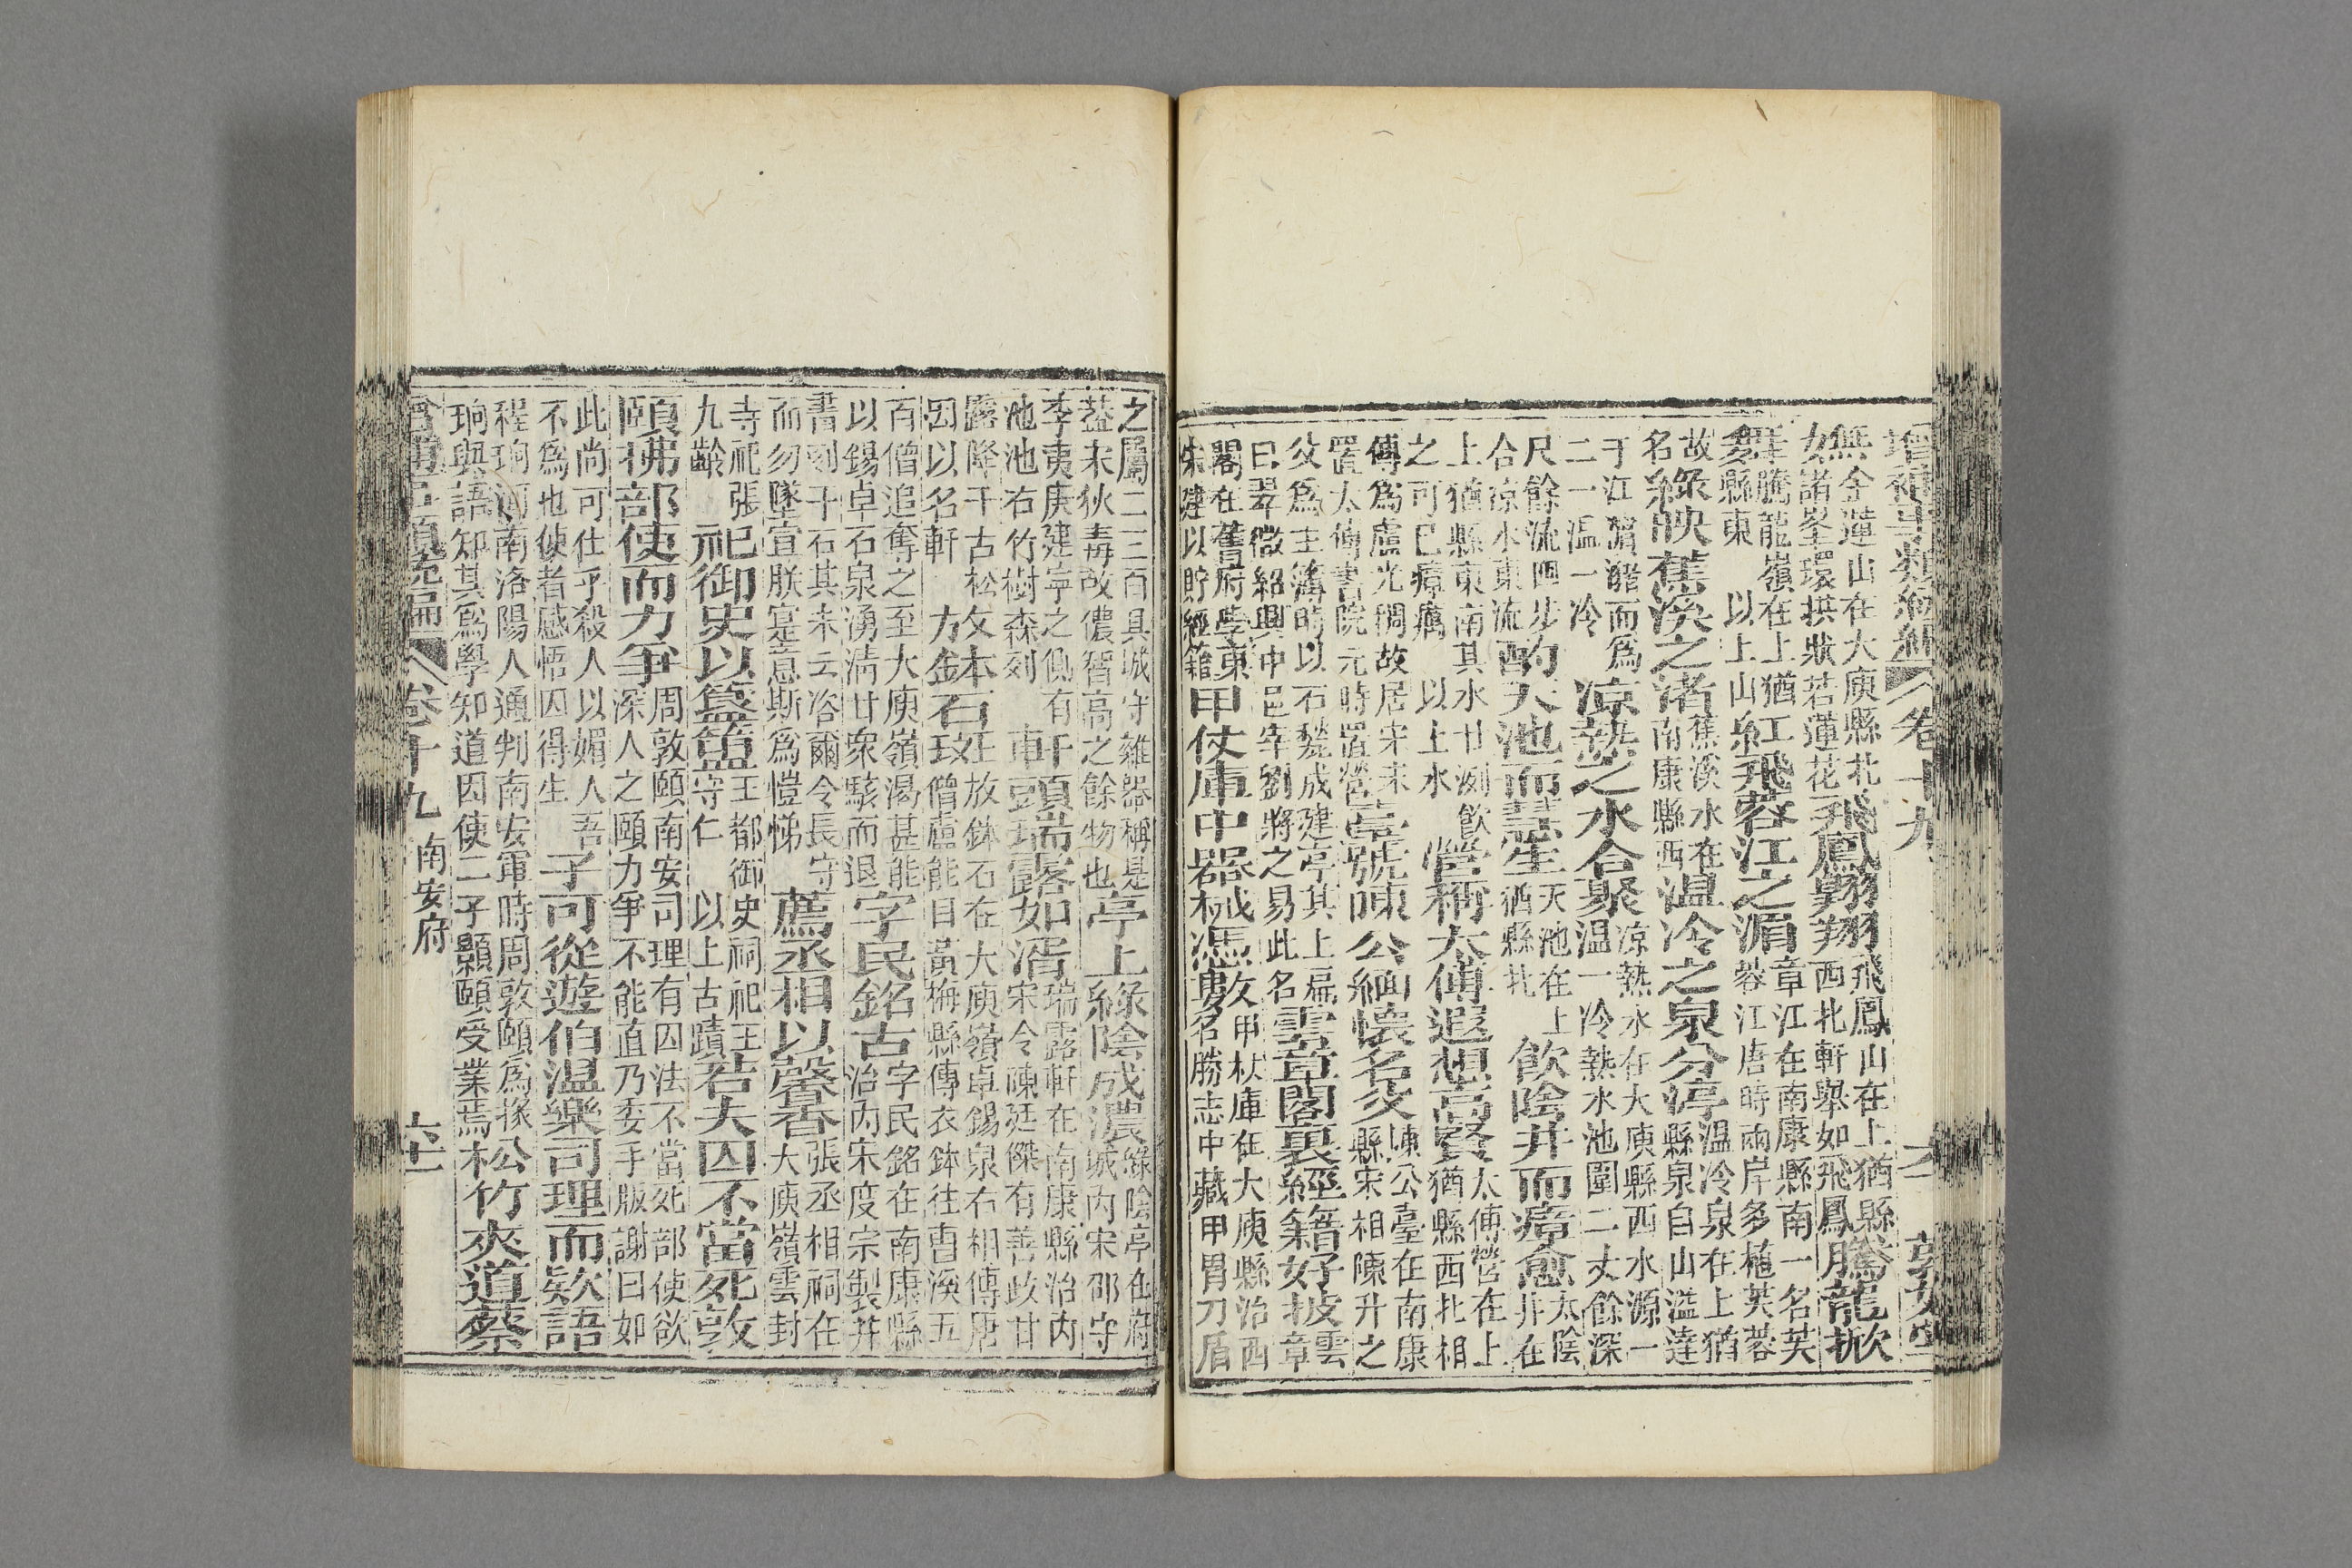 增補事類統編 卷十九 六十 敦好堂
無金蓮山在大庾縣北
如諸峯環拱狀若蓮花飛鳳翔翔飛鳳山在上猶縣
西北軒舉如飛鳳騰龍掀
舞騰龍嶺在上猶
縣東 以上山紅飛蓉江之湄章江在南康縣南一名芙
蓉江唐時兩岸多植芙蓉
故
名綠映蕉溪之渚蕉溪水在
南康縣西溫冷之泉分渟溫冷泉在上猶
縣泉自山溢達
于江瀦瀦而爲
二一溫一冷涼熱之水合聚涼熱水在大庾縣西水源一
溫一冷熱水池圍二丈餘深
尺餘流四步
合涼水東流酌天池而慧生天池在上
猶縣北 飲陰井而瘴愈太陰
井在
上猶縣東南其水甘冽飲
之可已瘴癘 以上水 營稱太傅遐想高賢太傅營在上
猶縣西北相
傳爲盧光稠故居宋末
置太傅書院元時置營臺號陳公緬懷名父陳公臺在南康
縣宋相陳升之
父爲主簿時以石甃成建亭其上扁
曰翠微紹興中邑宰劉將之易此名雲章閣裏經籍好披雲
章
閣在舊府學東
朱建以貯經籍甲仗庫中器械憑數甲杖庫在大庾縣治西
名勝志中藏甲冑刀盾
之屬二三百具城守雜器稱是
葢宋狄青故儂智高之餘物也亭上綠陰成濃綠陰亭在府
城内宋邵守
李夷庚建亭之側有
池池右竹樹森列 軒頭瑞露如湑瑞露軒在南康縣治内
宋令陳廷傑有善政甘
露降于古松
因以名軒 方本石在放鉢石在大庾嶺卓錫泉右相傳唐
僧盧能自黃梅縣傳衣鉢往曹溪五
百僧追奪之至大庾嶺渴甚能
以錫卓石泉湧淸甘衆駭而退字民銘古字民銘在南康縣
治内宋度宗製并
書刻于石其末云咨爾令長守
而勿墜宣朕寔意斯爲愷悌 薦丞相以馨香張丞相祠在
大庾嶺雲封
寺祀張
九齡 祀御史以簋簠王都御史祠祀王
守仁 以上古蹟若夫囚不當死敦
頤拂部使而力爭周敦頤南安司理有囚法不當死部使欲
深人之頤力爭不能直乃委手版謝曰如
此尚可仕乎殺人以媚人吾
不爲也使者感悟囚得生 子可從遊伯溫樂司理而欵語
程珦河南洛陽人通判南安軍時周敦頤爲掾
珦與語知其爲學知道因使二子顥頤受業焉松竹夾道蔡
卷十九 南安府 六十一